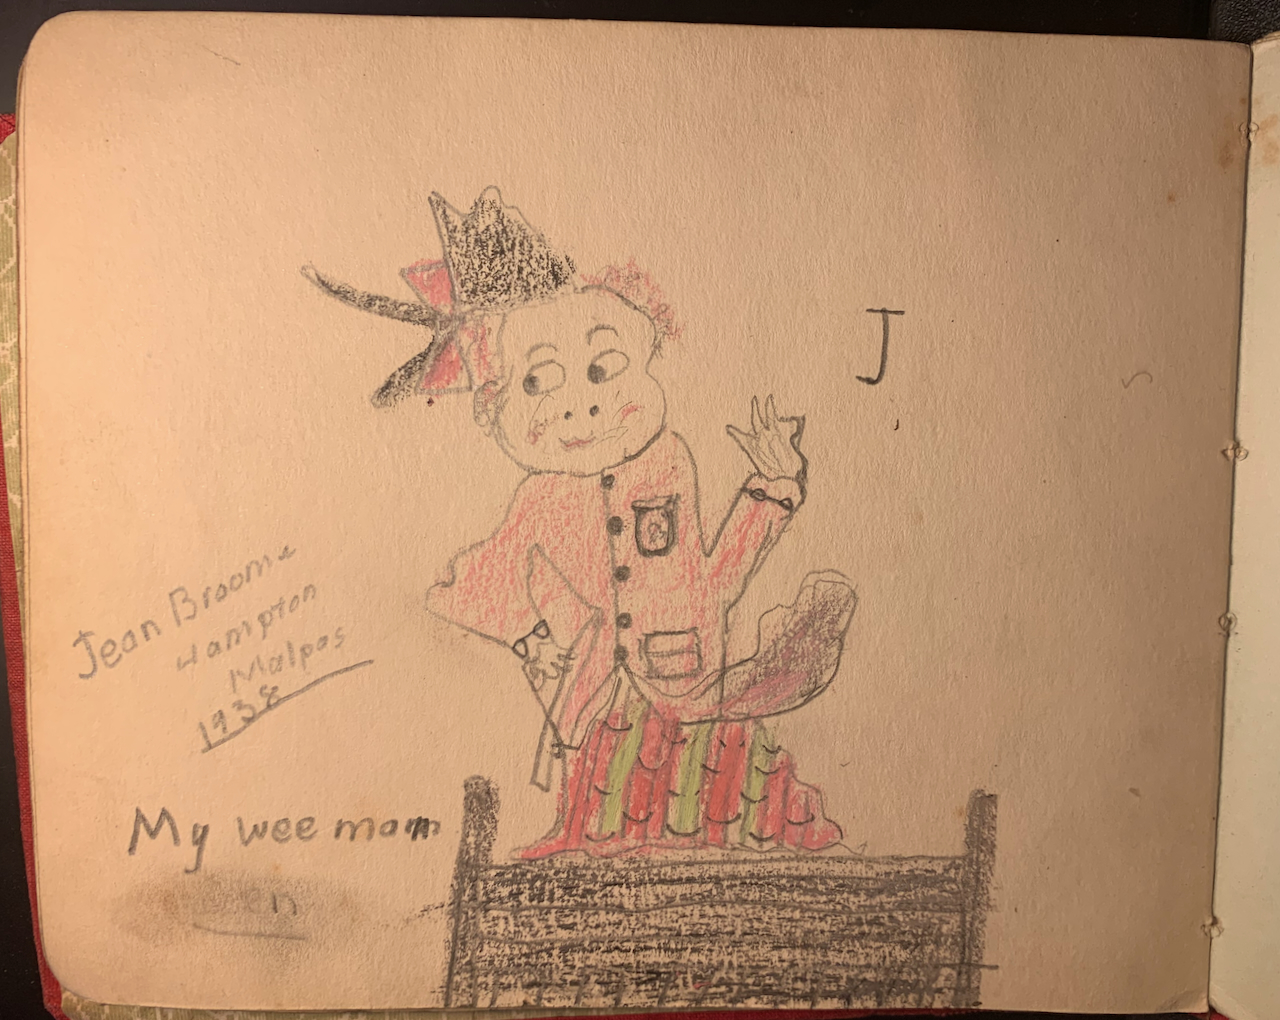 J
Jean Broome
Hampton
Malpas
1938
My wee mom
en